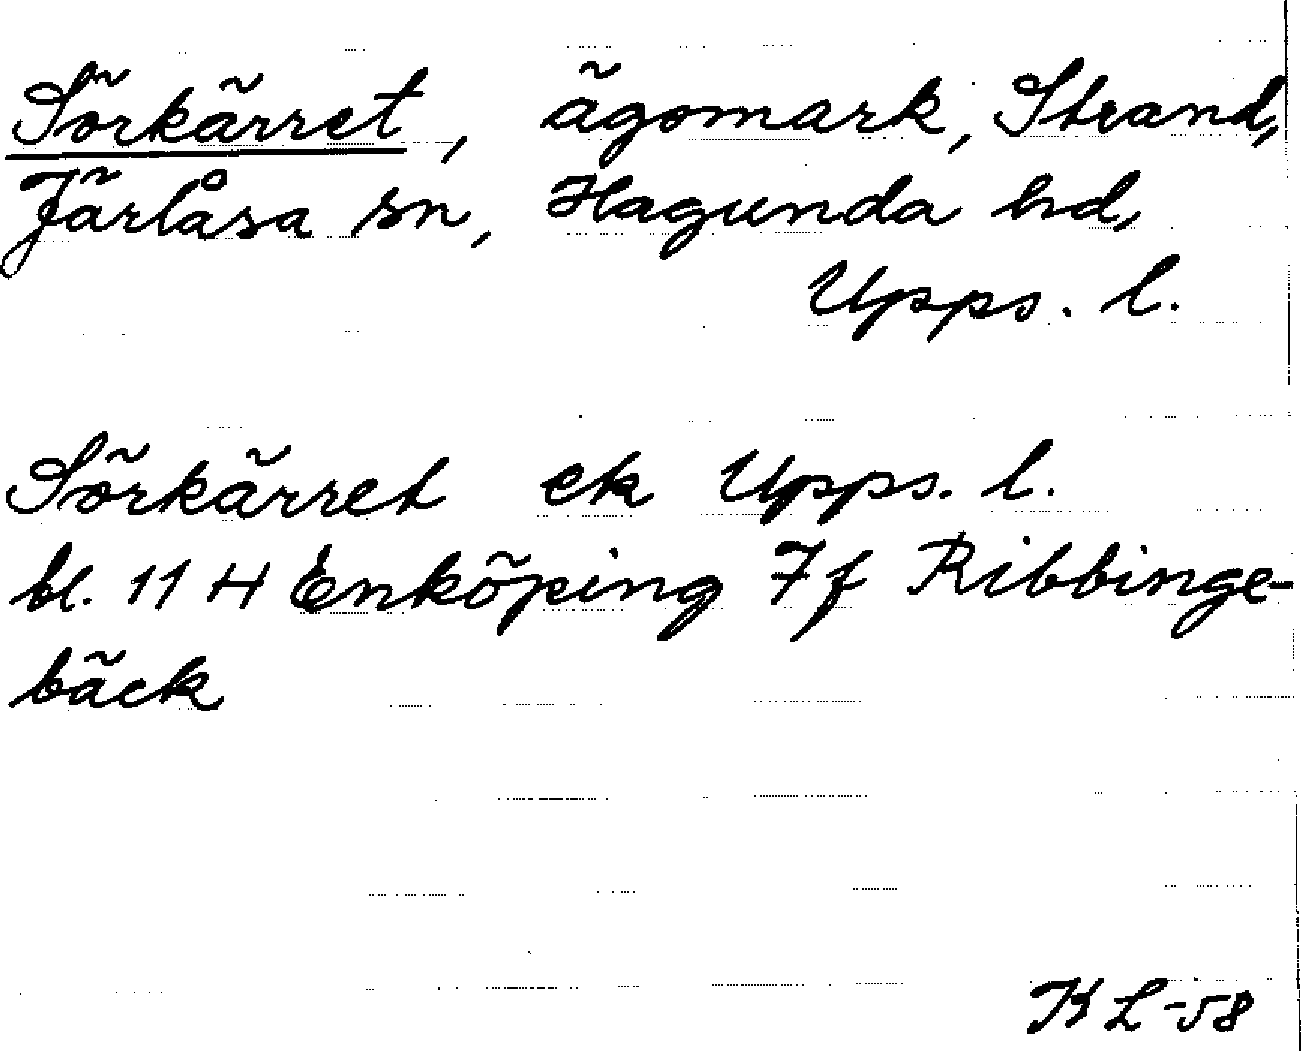 Sörkärret, ägomark, Strand,
Järlåsa sn, Hagunda hd,
Upps. l.
Sörkärret ek Upps. l.
bl. 11 H Enköping 7f Ribbinge-
bäck
KL-58